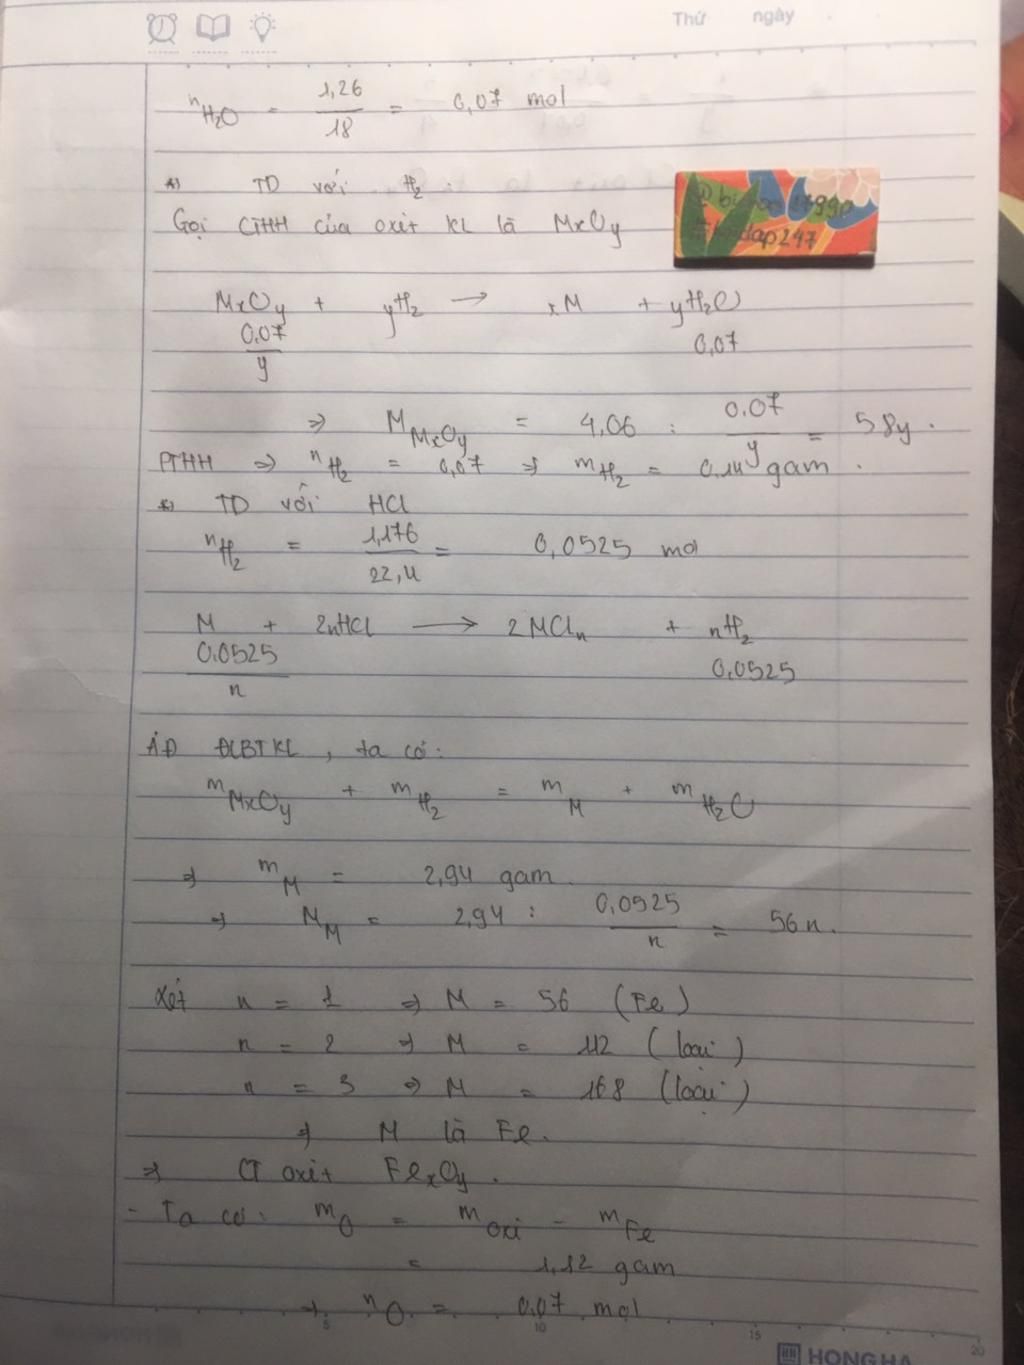 Thứ ngày
n H₂O = 1,26 / 18 = 0,07 mol
*) TD với H₂ :
Gọi CTHH của oxit KL là MxOy
MxOy + yH₂ → xM + yH₂O
0,07 / y 0,07
⇒ M MxOy = 4,06 : 0,07 / y = 58y.
PTHH ⇒ n H₂ = 0,07 ⇒ m H₂ = 0,14 gam.
*) TD với HCl
n H₂ = 1,176 / 22,4 = 0,0525 mol
M + 2nHCl → 2MCln + nH₂
0,0525 / n 0,0525
ÁD ĐLBTKL, ta có:
m MxOy + m H₂ = m M + m H₂O
⇒ m M = 2,94 gam.
⇒ M M = 2,94 : 0,0525 / n = 56n.
Xét n = 1 ⇒ M = 56 (Fe)
n = 2 ⇒ M = 112 (loại)
n = 3 ⇒ M = 168 (loại)
⇒ M là Fe.
⇒ CT oxit FexOy.
- Ta có: m O = m oxi - m Fe
= 1,12 gam
⇒ n O = 0,07 mol
5 10 15 20
HONG HA